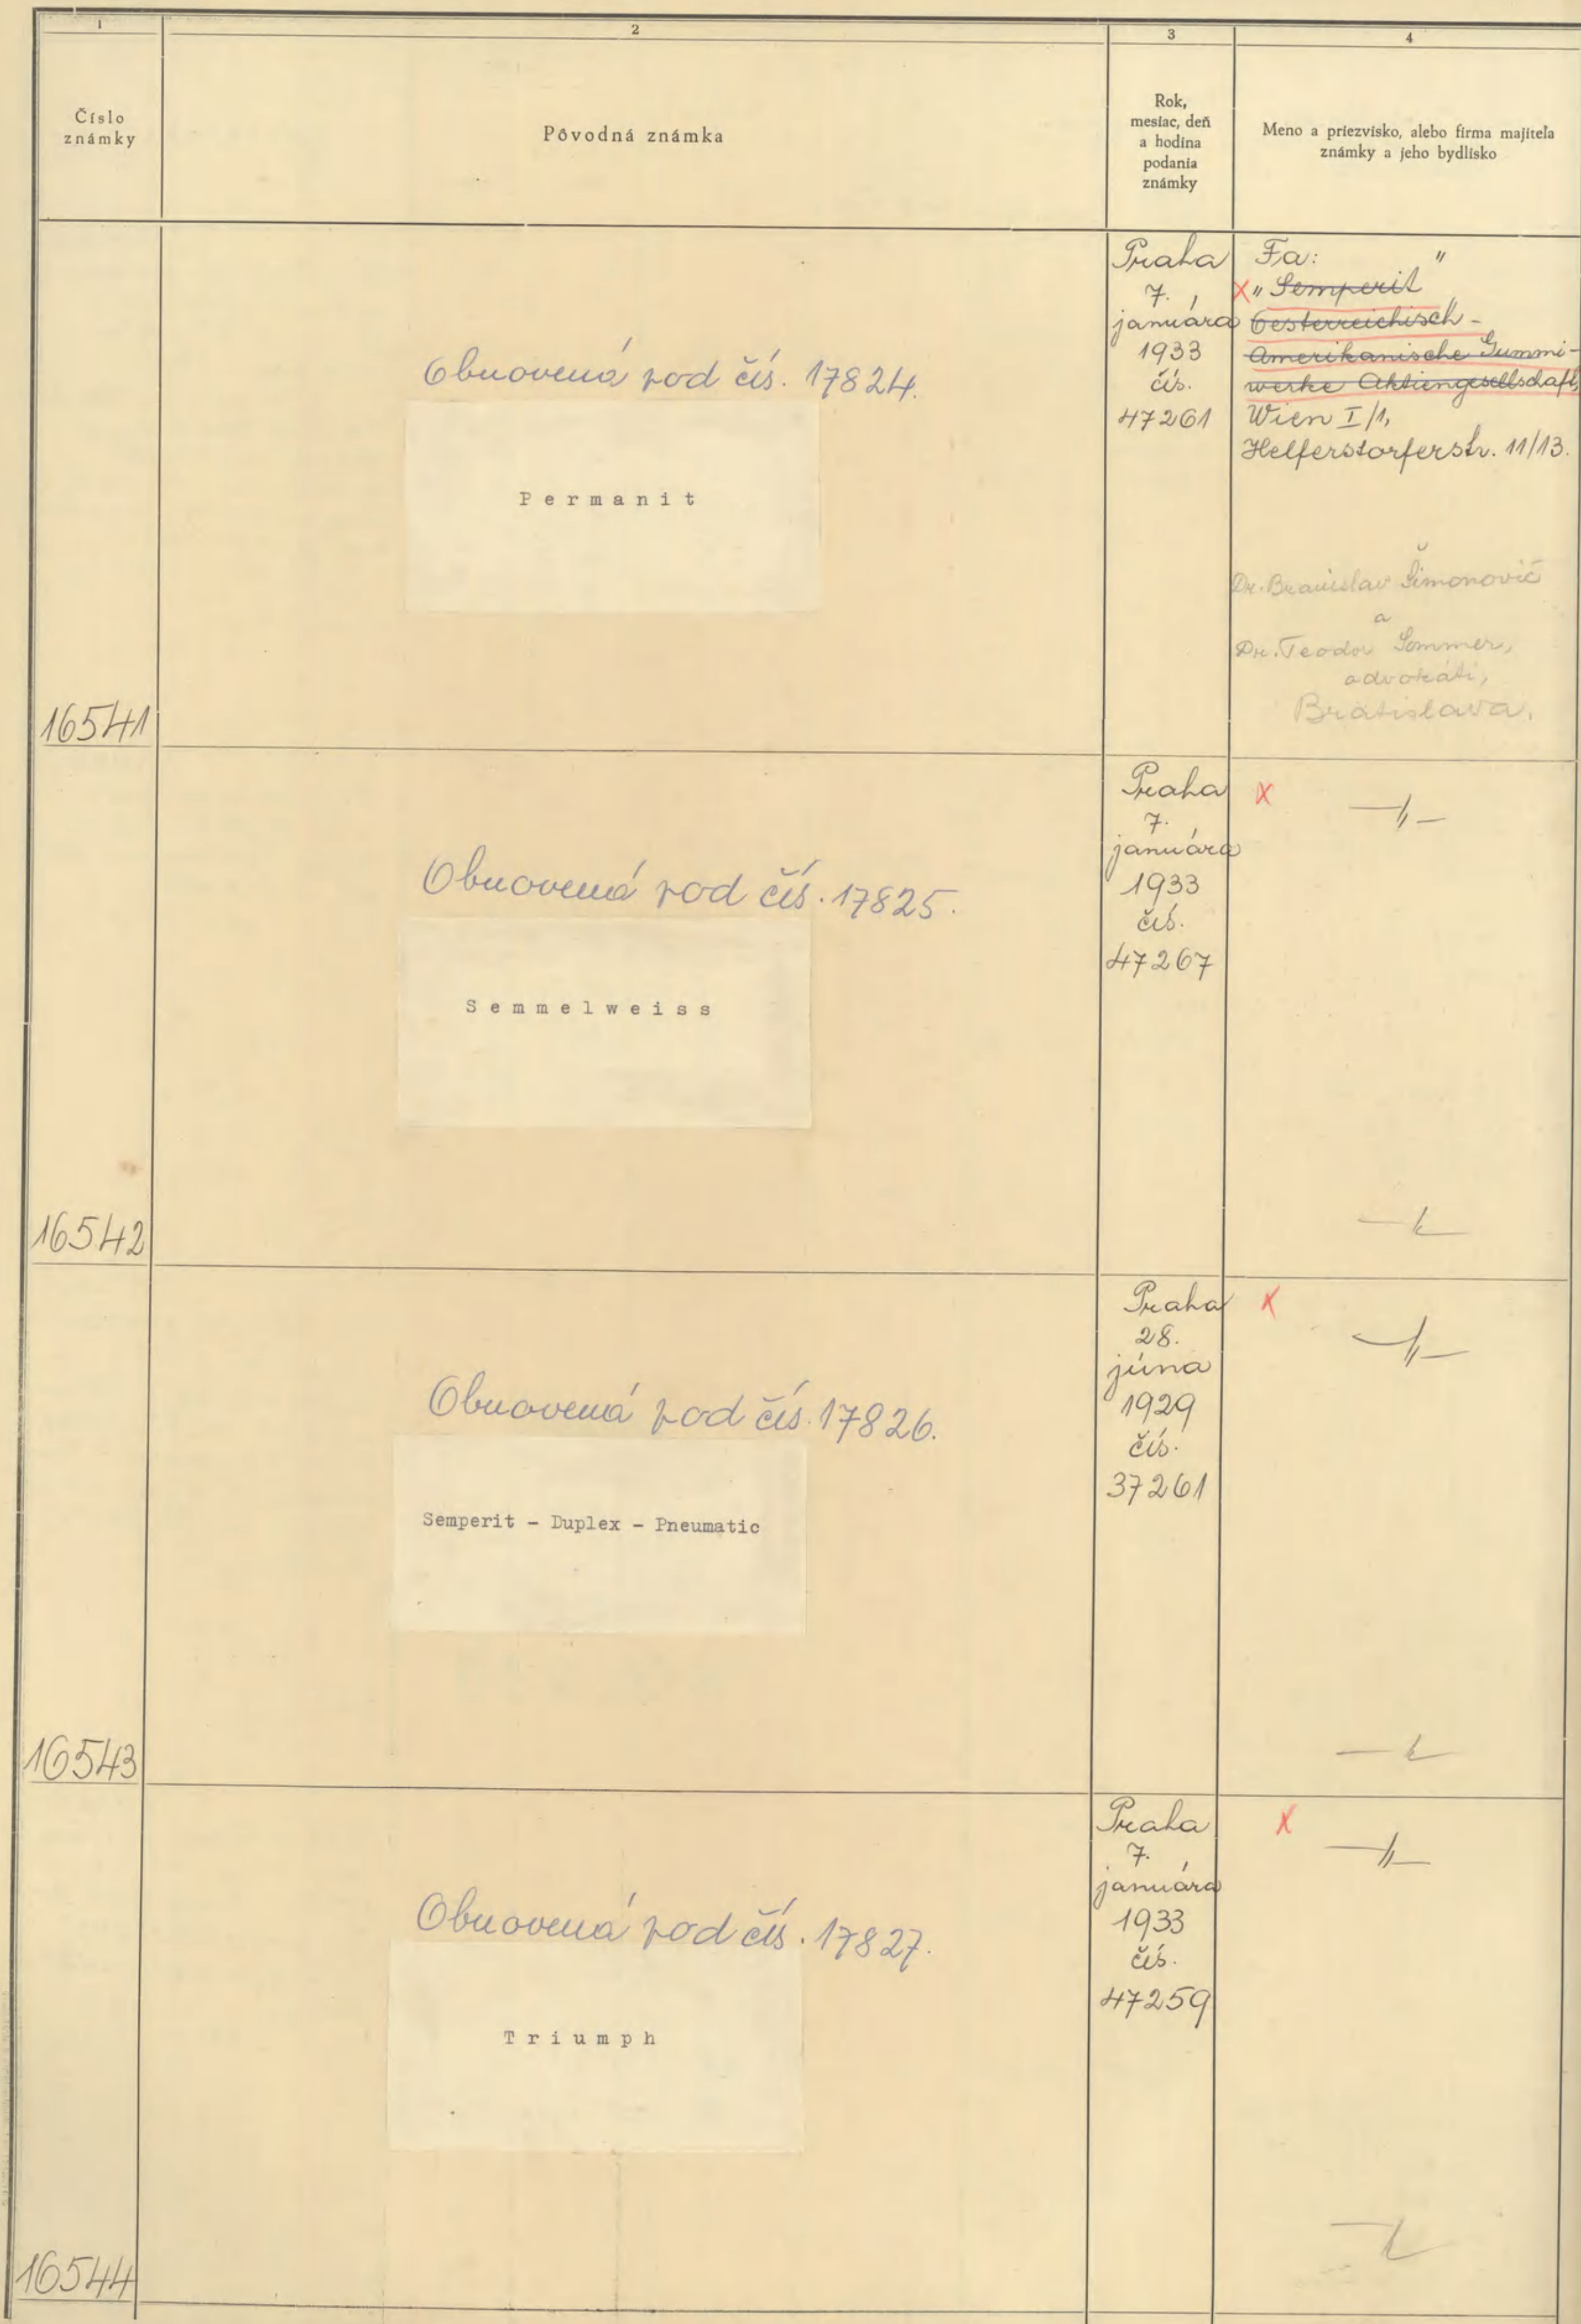 1
2
3
4
Číslo
známky
Pôvodná známka
Rok,
mesiac, deň
a hodina
podania
známky
Meno a priezvisko, alebo firma majiteľa
známky a jeho bydlisko
16541
Obnovená pod čís. 17824.
Permanit
Praha
7.
januára
1933
čís.
47261
Fa:
"Semperit"
Oesterreichisch-
Amerikanische Gummi-
werke Aktiengesellschaft,
Wien I/1,
Helferstorferstr. 11/13.
Dr. Branislav Šimonovič
a
Dr. Teodor Sommer,
advokáti,
Bratislava.
16542
Obnovená pod čís. 17825.
Semmelweiss
Praha
7.
januára
1933
čís.
47267
X
—"—
—"—
16543
Obnovená pod čís. 17826.
Semperit - Duplex - Pneumatic
Praha
28.
júna
1929
čís.
37261
X
—"—
—"—
16544
Obnovená pod čís. 17827.
Triumph
Praha
7.
januára
1933
čís.
47259
X
—"—
—"—